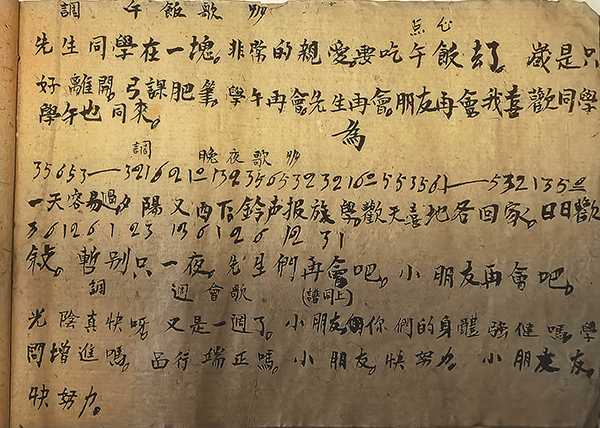 調 午飯歌
点心
先生同學在一塊。非常的親愛要吃午飯去了。歲是只
好離開。弓課肥筆。學午再會。先生再會。朋友再會。我喜歡同學
學午也同來。
為
調 晚夜歌
35653——321621 13565323216 553561——532135
一天容易過。夕陽又西下鈴声报族學。歡天喜地各回家。日日歡
36126 1 23 13 61 26 12 31
敍。暫别只一夜。先生們再會吧。小朋友再會吧。
調 週會歌(譜同上)
光陰真快呀 又是一週了。小朋友你們的身體强健嗎。學
問增進嗎。品行端正嗎。小朋友。快努力。小朋友友。
快努力。